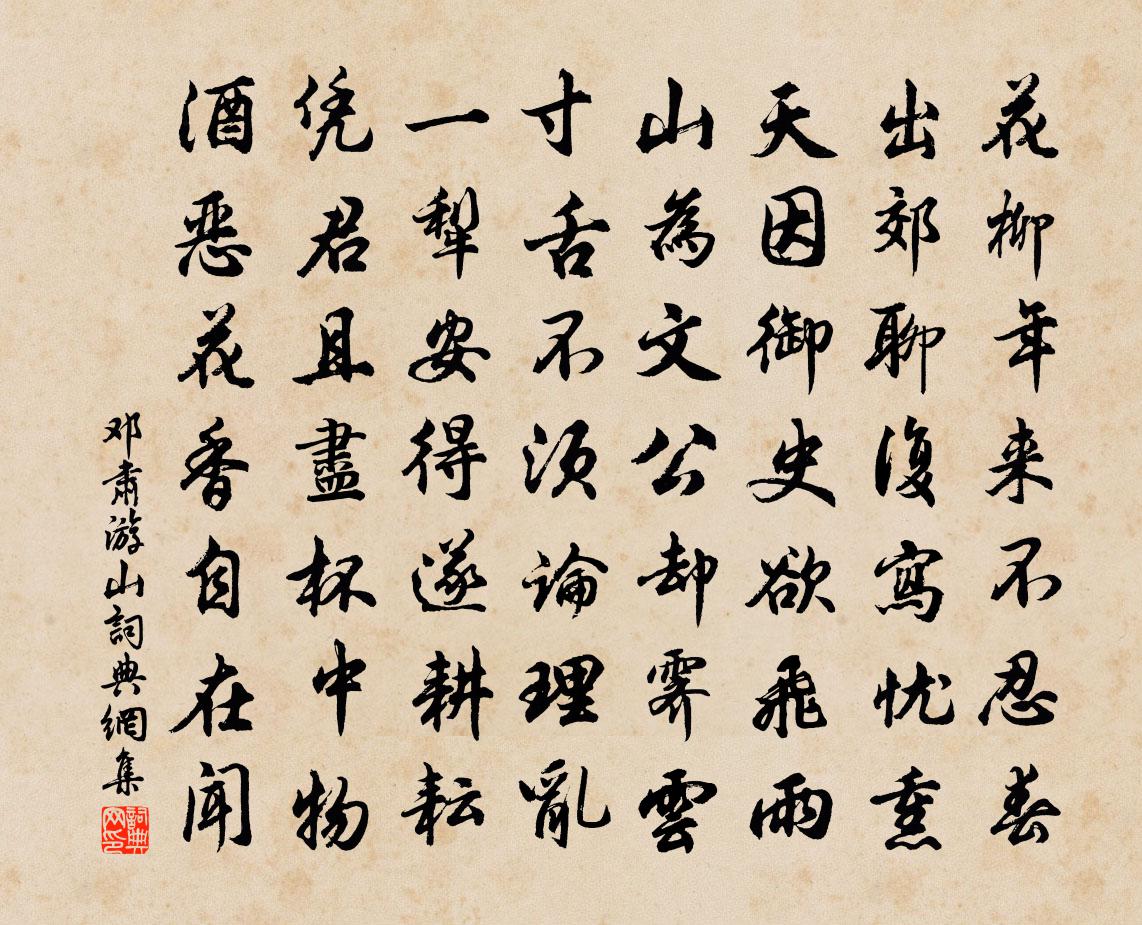 花柳年来不忍春
出郊聊復寫忧熏
天因御史欲飛雨
山為文公却霽雲
寸舌不須論理亂
一犁安得遂耕耘
凭君且盡杯中物
酒恶花香自在闻
邓肃游山詞典網集
詞典网印